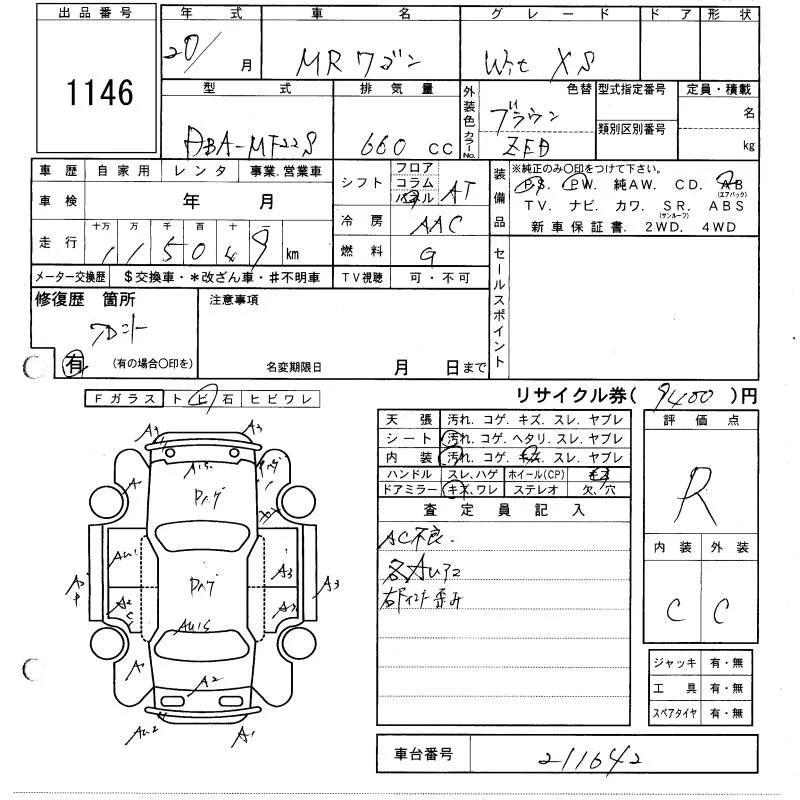 出品番号
1146
年 式
20/ 月
車 名
MRワゴン
グレード
Wit XS
ドア
形 状
型 式
DBA-MF22S
排 気 量
660 CC
外装色 カラーNo.
色替
ブラウン
ZED
型式指定番号
類別区別番号
定員・積載
名
kg
車 歴 自家用 レンタ 事業.営業車
車 検 年 月
走 行 十万 万 千 百 十 一
115049 km
メーター交換歴 $交換車・*改ざん車・#不明車
シフト フロア コラム パネル AT
冷 房 AAC
燃 料 G
TV視聴 可・不可
装備品
※純正のみ○印をつけて下さい。
PS. PW. 純AW. CD. AB (エアバック)
TV. ナビ. カワ. SR. (サンルーフ) ABS
新車保証書. 2WD. 4WD
セールスポイント
修復歴 箇所
フロント
有 (有の場合○印を)
注意事項
名変期限日 月 日まで
Fガラス ト ビ 石 ヒビワレ
リサイクル券( 9400 )円
A3
A3
A1.5
Dハゲ
A
AU1
A2
Dハゲ
A3
A3
AU1.5
A
A2
AU2
A1
天 張 汚れ. コゲ. キズ. スレ. ヤブレ
シート 汚れ. コゲ. ヘタリ. スレ. ヤブレ
内 装 汚れ. コゲ. キズ. スレ. ヤブレ
ハンドル スレ、ハゲ ホイール(CP) キズ
ドアミラー キズ、ワレ ステレオ 欠、穴
査 定 員 記 入
AC不良.
各AU
歪み
評 価 点
R
内 装 外 装
C C
ジャッキ 有・無
工 具 有・無
スペアタイヤ 有・無
車台番号 211642